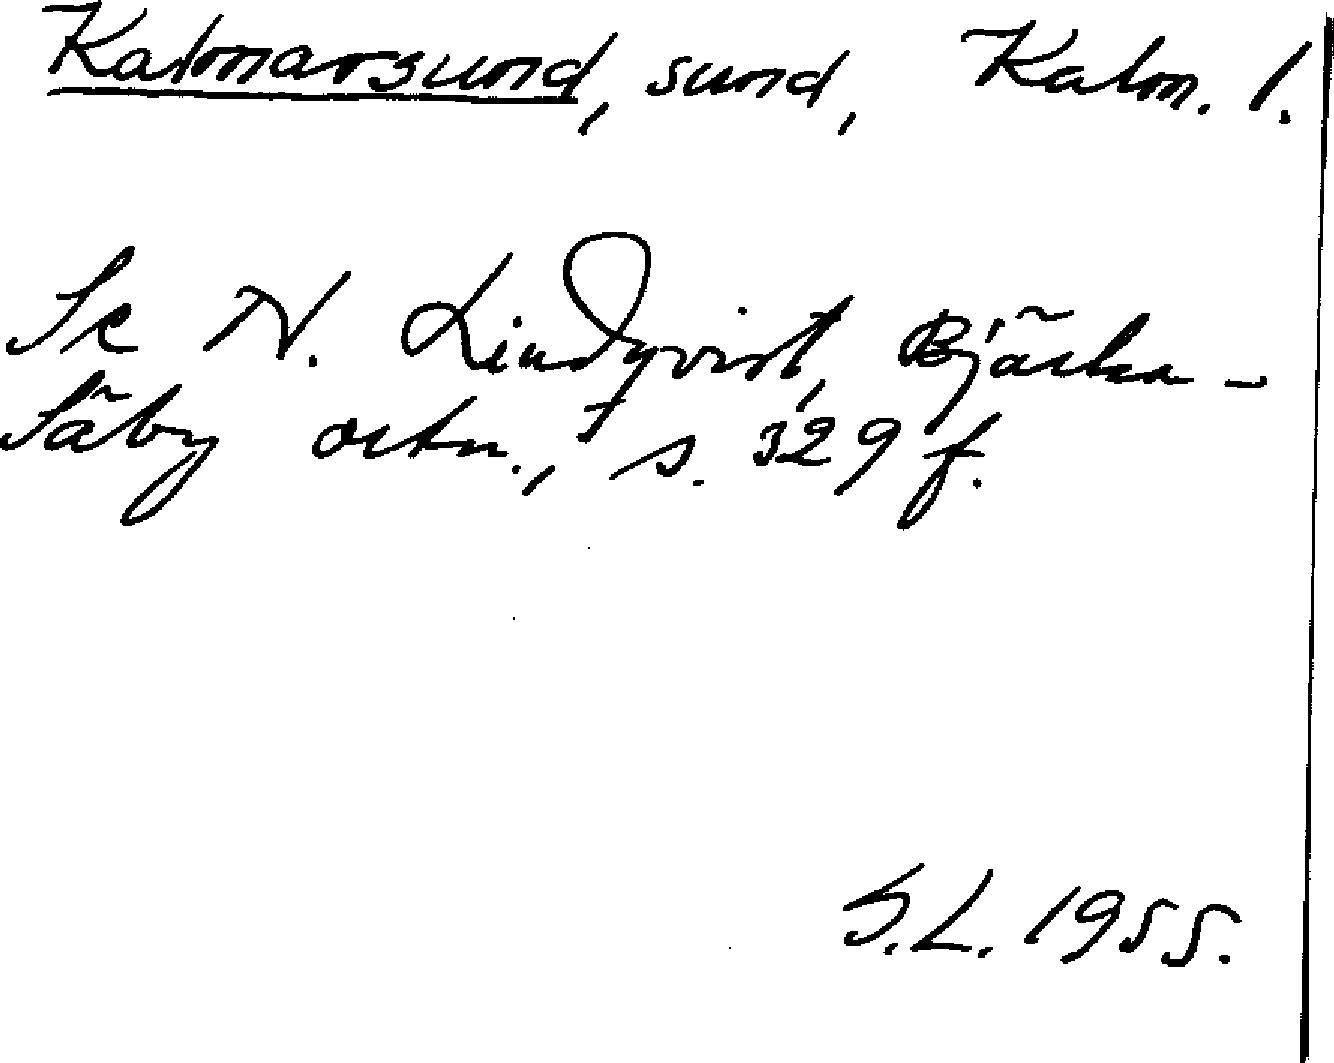 Kalmarsund, sund, Kalm. l.
Se N. Lindqvist, Bjärka-
Säby ortn., s. 329 f.
S.L. 1955.